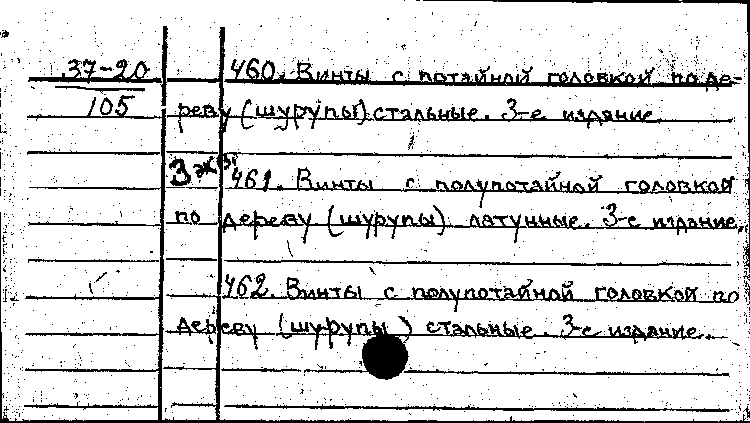 37-20 460. Винты с потайной головкой по де-
105 реву (шурупы) стальные. 3-е издание
3 экз. 461. Винты с полупотайной головкой
по дереву (шурупы) латунные. 3-е издание.
462. Винты с полупотайной головкой по
дереву (шурупы) стальные. 3-е издание.